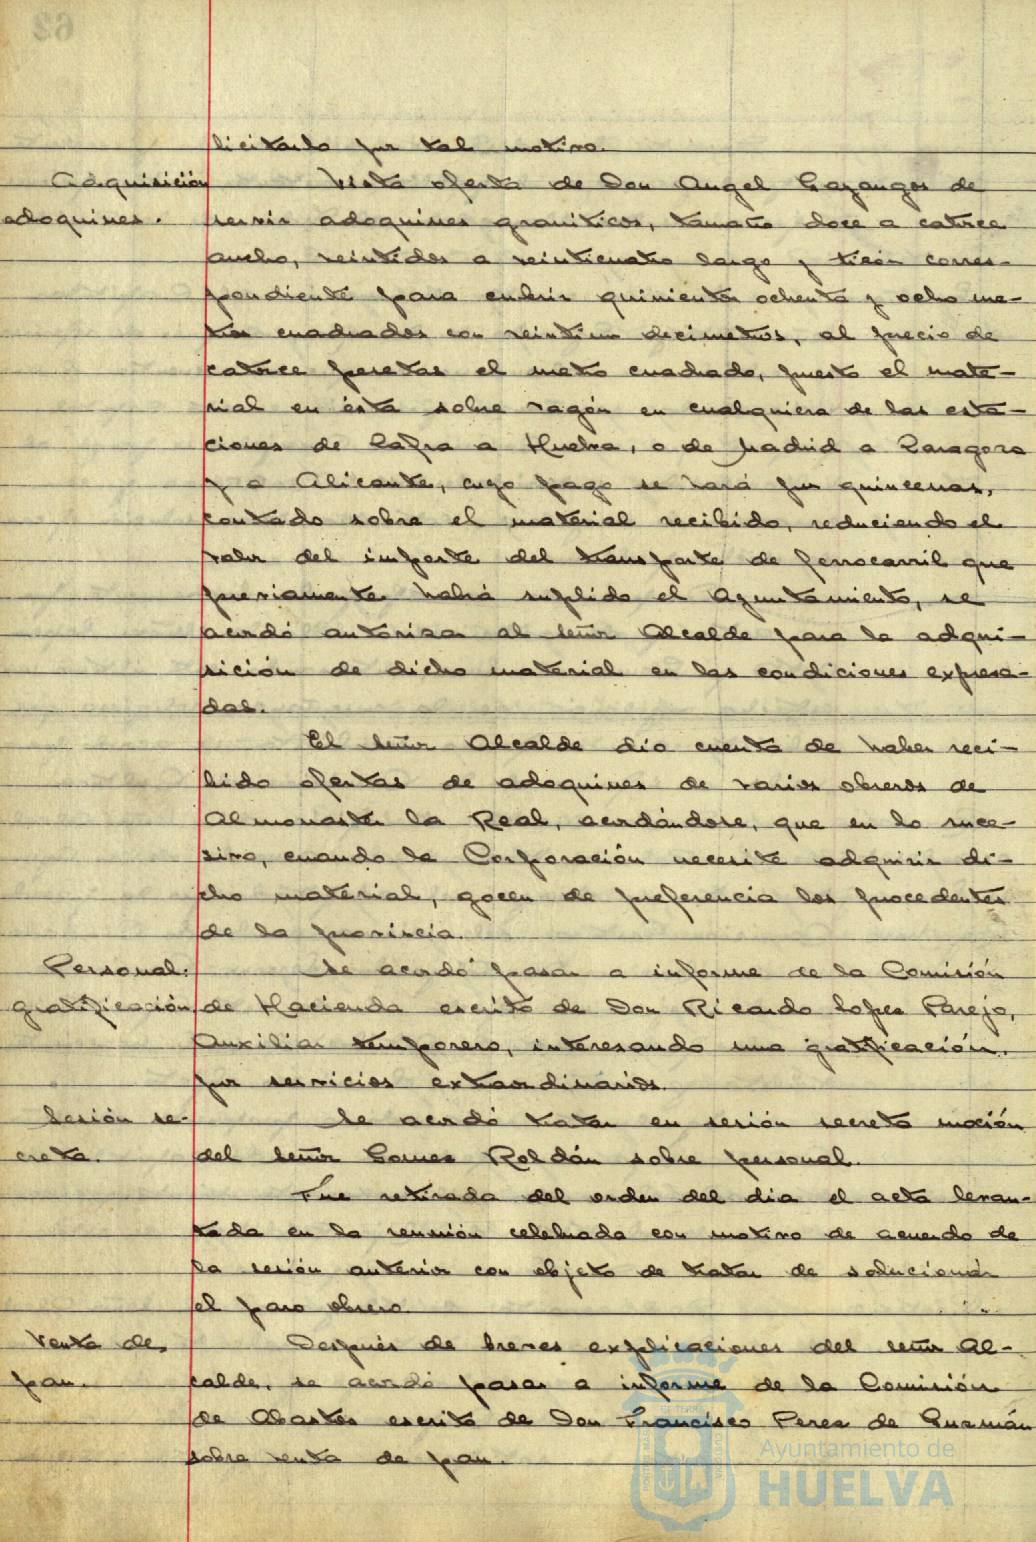 licitarlo por tal motivo.
Adquisición
adoquines.
Vista oferta de Don Angel Gayangos de
servir adoquines graníticos, tamaño doce a catorce
ancho, veintidos a veinticuatro largo y tizón corres-
pondiente para cubrir quinientos ochenta y ocho me-
tros cuadrados con veintiun decimetros, al precio de
catorce pesetas el metro cuadrado, puesto el mate-
rial en ésta sobre vagón en cualquiera de las esta-
ciones de Zafra a Huelva, o de Madrid a Zaragoza
y a Alicante, cuyo pago se hará por quincenas,
contado sobre el material recibido, reduciendo el
valor del importe del transporte de ferrocarril que
previamente habrá suplido el Ayuntamiento, se
acordó autorizar al señor Alcalde para la adqui-
sición de dicho material en las condiciones expresa-
das.
El señor Alcalde dio cuenta de haber reci-
bido ofertas de adoquines de varios obreros de
Almonaster la Real, acordándose, que en lo suce-
sivo, cuando la Corporación necesite adquirir di-
cho material, gocen de preferencia los procedentes
de la provincia.
Personal:
gratificación
Se acordó pasar a informe de la Comisión
de Hacienda escrito de Don Ricardo Lopez Parejo,
Auxiliar temporero, interesando una gratificación.
por servicios extraordinarios.
Sesión se-
creta.
Se acordó tratar en sesión secreta moción
del señor Gomez Roldán sobre personal.
Fue retirada del orden del dia el acta levan-
tada en la reunión celebrada con motivo de acuerdo de
la sesión anterior con objeto de tratar de solucionar
el paro obrero.
Venta de
pan.
Después de breves explicaciones del señor Al-
calde, se acordó pasar a informe de la Comisión
de Abastos escrito de Don Francisco Perez de Guzmán
sobre venta de pan.
Ayuntamiento de
HUELVA